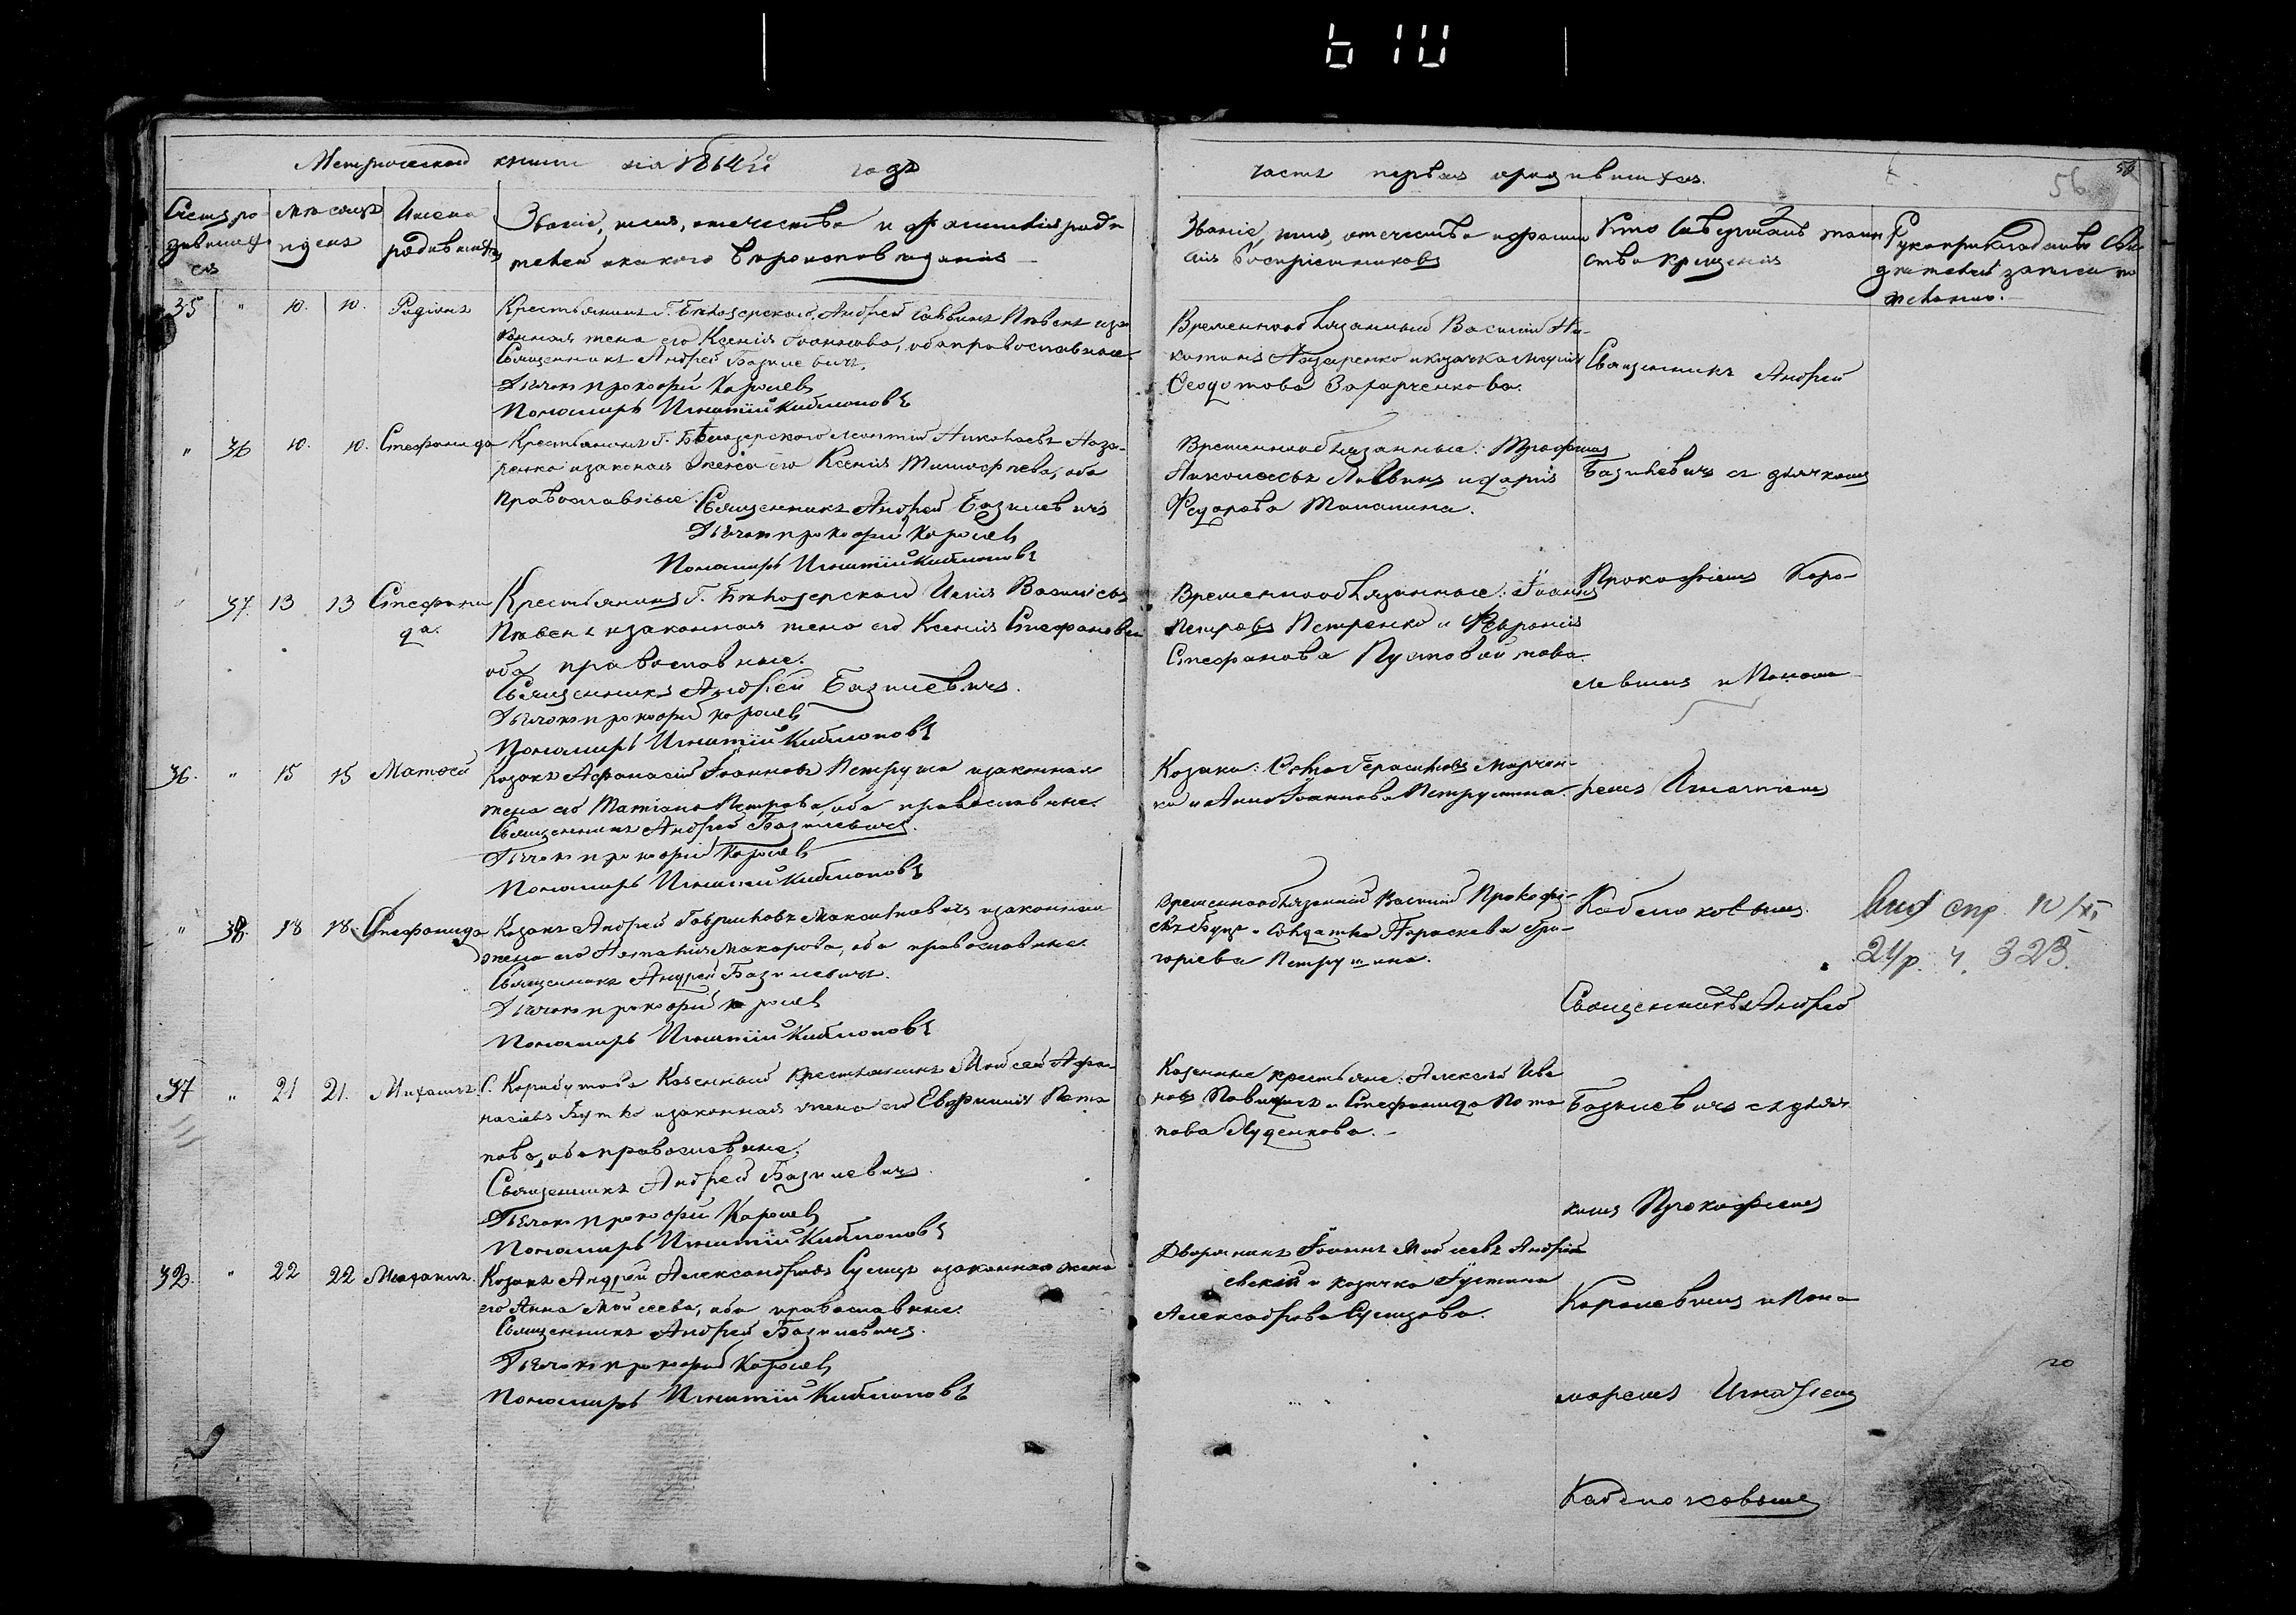 Метрической книги на 1864й годъ
часть первая о родившихся.
56
Счетъ ро-
дивших
ся
Мѣсяцъ
и день
Имена
родивших
Званіе, имя, отечество и фамилія роди
телей и какого вѣроисповѣданія
Званіе, имя, отечество и фами
лія воспріемниковъ
Кто совершалъ таин
ство крещенія
Рукоприкладство сви
дѣтелей записи по
желанію.
35 " 10. 10. Родіонъ
Крестьянинъ Г. Бѣлозерскаго, Андрей Саввинъ Пѣвень и за
конная жена его Ксенія Іоаннова, оба православные
Священникъ Андрей Базилевичъ.
Дьячокъ Прокофій Королевъ
Пономарь Игнатій Кибалоповъ
Временнообязанный Василій Ни-
Назаренко и козачка Марія
Ѳеодотова Захарченкова.
Священникъ Андрей
" 36 10. 10. Стефанида
Крестьянинъ Г. Бѣлозерскаго Леонтій Николаевъ Наза-
ренко и законная жена его Ксенія Тимофѣева, оба
православные. Священникъ Андрей Базилевичъ
Дьячокъ Прокофій Королевъ
Пономарь Игнатій Кибалоповъ
Временнообязанные: Трофимъ
Николаевъ и Дарія
Федорова
Базилевичъ съ дьячкомъ
" 37. 13 13 Стефани
да.
Крестьянинъ Г. Бѣлозерскаго Илія Васильевъ
Пѣвень и законная жена его Ксенія Стефанова
оба православные.
Священникъ Андрей Базилевичъ.
Дьячокъ Прокофій Королевъ
Пономарь Игнатій Кибалоповъ
Временнообязанные: Іоаннъ
Петровъ Петренко и Февронія
Стефанова Пустовойтова.
Прокофіемъ Коро-
левымъ и Понома
36. " 15 15 Матѳей
Козакъ Афанасій Іоанновъ Петруша и законная
жена его Татіана Петрова, оба православные.
Священникъ Андрей Базилевичъ.
Дьячокъ Прокофій Королевъ
Пономарь Игнатій Кибалоповъ
Козаки: Герасимовъ Марчен-
ко и Анна Іоаннова Петрушина.
ремъ Игнатіемъ
" 38. 18 18. Стефанида
Козакъ Андрей Гавриловъ Максимовичъ и законная
жена его Наталія Макарова, оба православные.
Священникъ Андрей Базилевичъ.
Дьячокъ Прокофій Королевъ
Пономарь Игнатій Кибалоповъ
Временнообязанный Василій Прокофі-
евъ и солдатка Параскева Гри-
горіева Петрушина.
Кабелоковымъ.
Вид спр. 10/XI
24р. ч. 323.
Священникъ Андрей
37 " 21 21. Михаилъ
С. Корибутова Казенный крестьянинъ Моѵсей Афа-
насіевъ Бутко и законная жена его Евфимія Пота
пова, оба православные.
Священникъ Андрей Базилевичъ.
Дьячокъ Прокофій Королевъ
Пономарь Игнатій Кибалоповъ
Казенные крестьяне: Алексѣй Ива
новъ и Стефанида Пота
пова Луценкова.
Базилевичъ съ дьяч
комъ Прокофіемъ
38. " 22 22 Михаилъ.
Козакъ Андрей Александровъ Сулица и законная жена
его Анна Моисеева, оба православные.
Священникъ Андрей Базилевичъ.
Дьячокъ Прокофій Королевъ
Пономарь Игнатій Кибалоповъ
Дворянинъ Іоаннъ Моѵсеевъ Андрій
евскій и козачка Іустина
Александрова Сулицова.
Королевымъ и Поно
маремъ Игнатіемъ
Кабелоковымъ